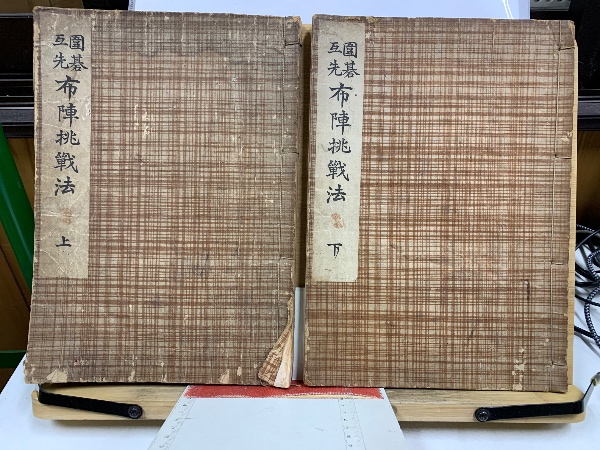 圍碁
互先
布陣挑戰法
上
圍碁
互先
布陣挑戰法
下